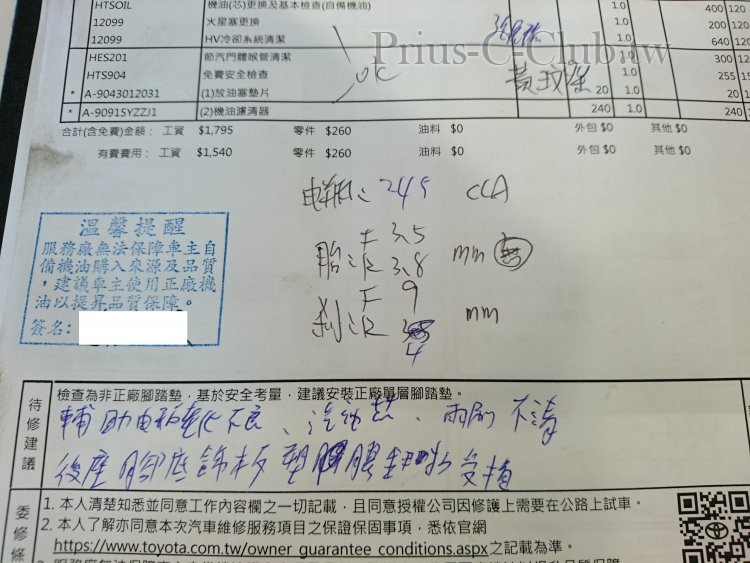 HTSOIL 機油(芯)更換及基本檢查(自備機油) 1.0 400 120
12099 火星塞更換 1.0 200 120
12099 HV冷卻系統清潔 1.0 640 120
Prius-C-Club.tw
HES201 節汽門體喉管清潔 1.0 300
HTS904 免費安全檢查 1.0 255
OK
* A-9043012031 (1)放油塞墊片 20 1.0 20
* A-90915YZZJ1 (2)機油濾清器 240 1.0 240
合計(含免費)金額： 工資 $1,795 零件 $260 油料 $0 外包 $0 其他 $0
有費費用： 工資 $1,540 零件 $260 油料 $0 外包 $0 其他 $0
电瓶: 245 CCA
F 3.5
胎: R 3.8 mm
F 9
剎: R 4 mm
溫馨提醒
服務廠無法保障車主自
備機油購入來源及品質
，建議車主使用正廠機
油以提昇品質保障。
簽名:
待修建議
檢查為非正廠腳踏墊，基於安全考量，建議安裝正廠單層腳踏墊。
輔助电瓶電化不良、汽油蕊、雨刷不清
後座腳底飾板塑膠膠釦受損
委修條
1. 本人清楚知悉並同意工作內容欄之一切記載，且同意授權公司因修護上需要在公路上試車。
2. 本人了解亦同意本次汽車維修服務項目之保證保固事項，悉依官網
https://www.toyota.com.tw/owner_guarantee_conditions.aspx之記載為準。